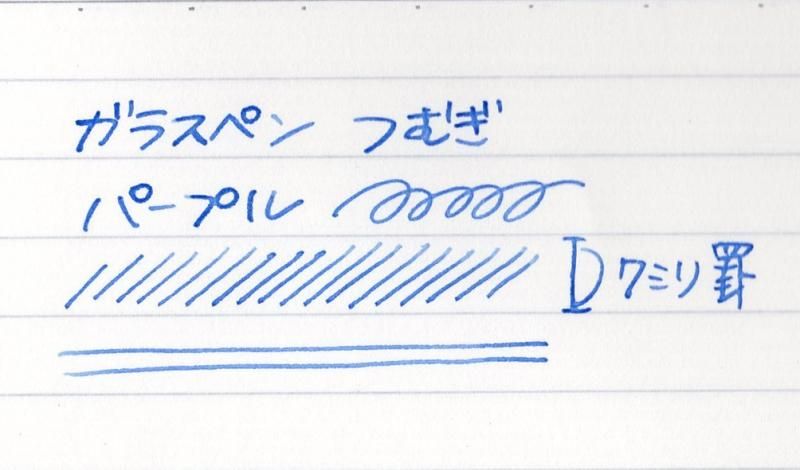 ガラスペン つむぎ
パープル
7ミリ罫